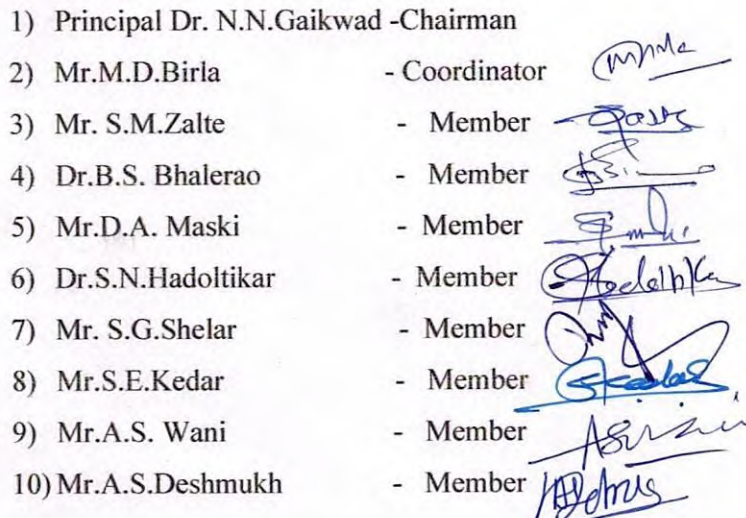 1) Principal Dr. N.N.Gaikwad -Chairman
2) Mr.M.D.Birla - Coordinator
3) Mr. S.M.Zalte - Member
4) Dr.B.S. Bhalerao - Member
5) Mr.D.A. Maski - Member
6) Dr.S.N.Hadoltikar - Member
7) Mr. S.G.Shelar - Member
8) Mr.S.E.Kedar - Member
9) Mr.A.S. Wani - Member
10) Mr.A.S.Deshmukh - Member